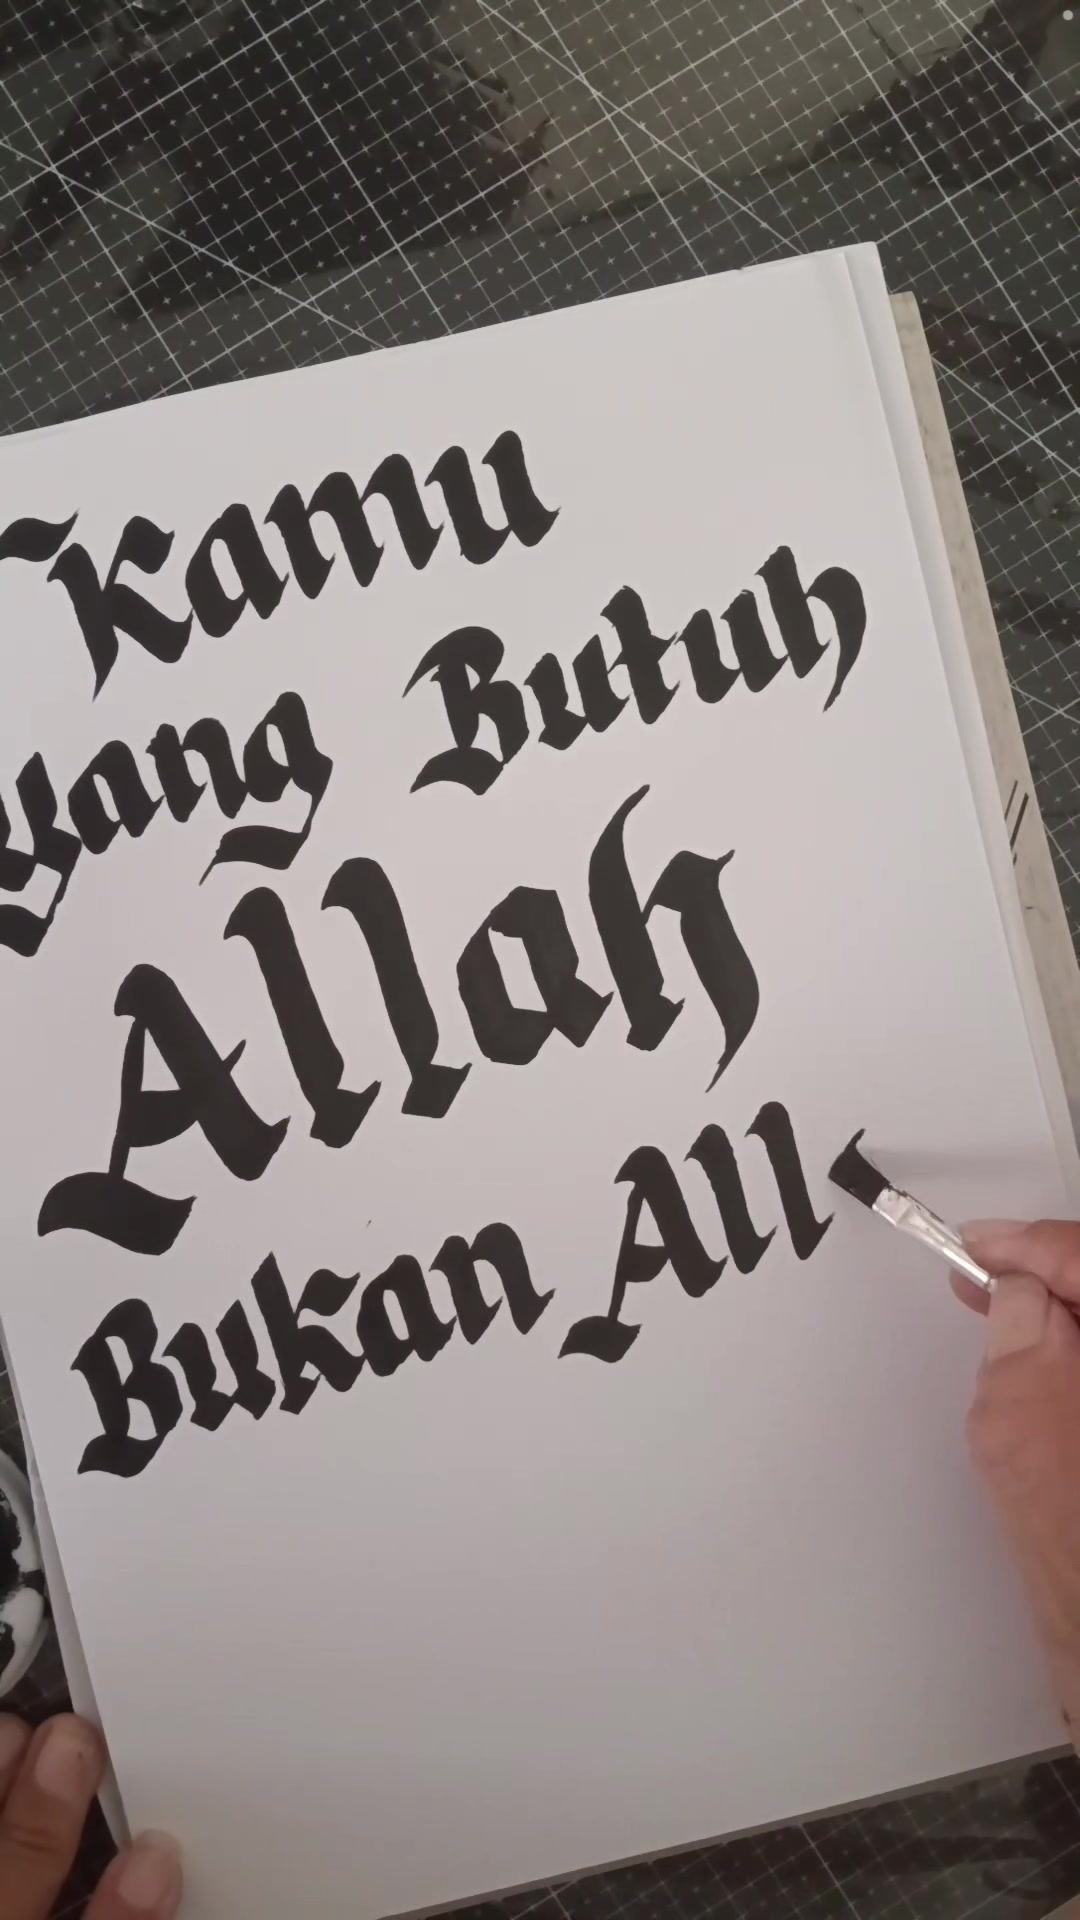 Kamu
yang Butuh
Allah
Bukan All